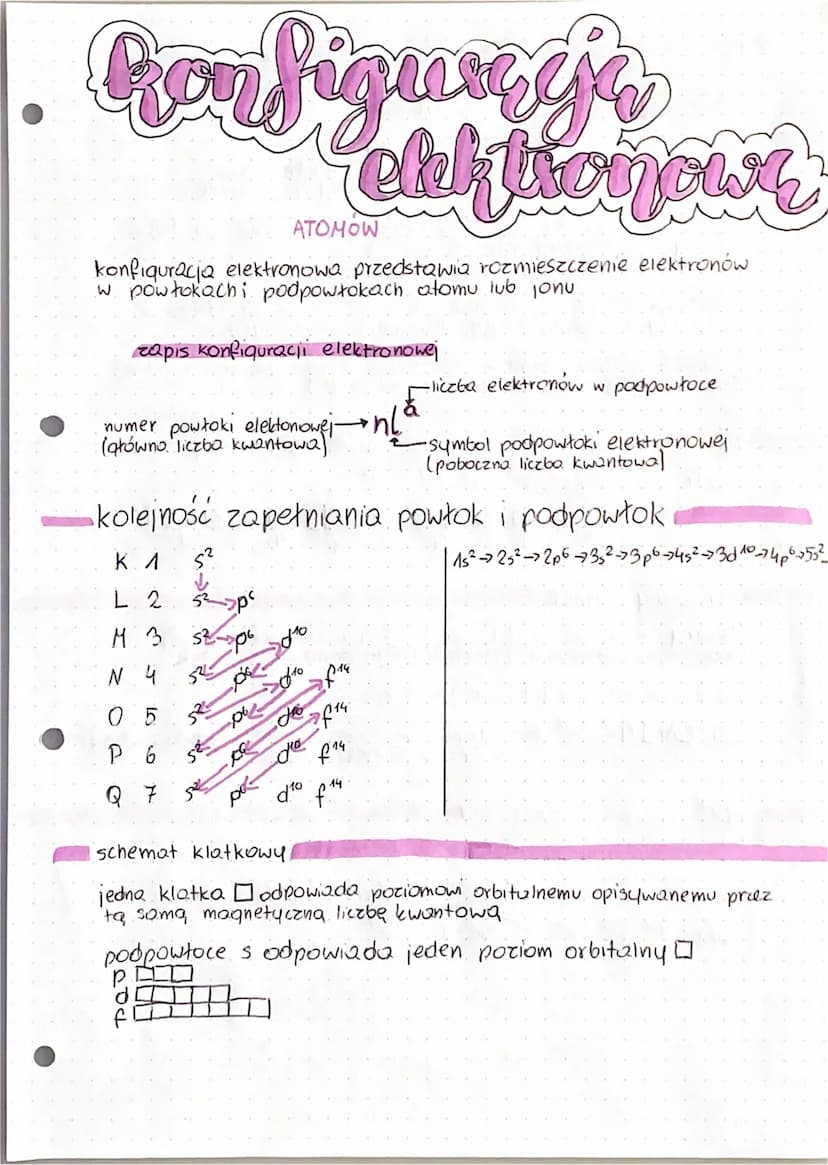 konfiguracja
elektronowa
ATOMÓW
konfiguracja elektronowa przedstawia rozmieszczenie elektronów
w powłokach i podpowłokach atomu lub jonu
zapis konfiguracji elektronowej
liczba elektronów w podpowłoce
numer powłoki elektonowej → nlᵃ
(główna liczba kwantowa)
symbol podpowłoki elektronowej
(poboczna liczba kwantowa)
kolejność zapełniania powłok i podpowłok
K 1 s²
L 2 s² → p⁶
M 3 s² → p⁶ d¹⁰
N 4 s² p⁶ d¹⁰ f¹⁴
O 5 s² p⁶ d¹⁰ f¹⁴
P 6 s² p⁶ d¹⁰ f¹⁴
Q 7 s² p⁶ d¹⁰ f¹⁴
1s² → 2s² → 2p⁶ → 3s² → 3p⁶ → 4s² → 3d¹⁰ → 4p⁶ → 5s²
schemat klatkowy
jedna klatka □ odpowiada poziomowi orbitalnemu opisywanemu przez
tą samą magnetyczną liczbę kwantową
podpowłoce s odpowiada jeden poziom orbitalny □
p
d
f